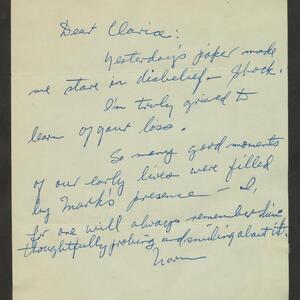 Dear Clarice:
Yesterday's paper made
me stare in disbelief – Shock.
I'm truly grieved to
learn of your loss.
So many good moments
of our early lives were filled
by Mark's presence – I,
for one will always remember him
thoughtfully probing and smiling about it.
Norm